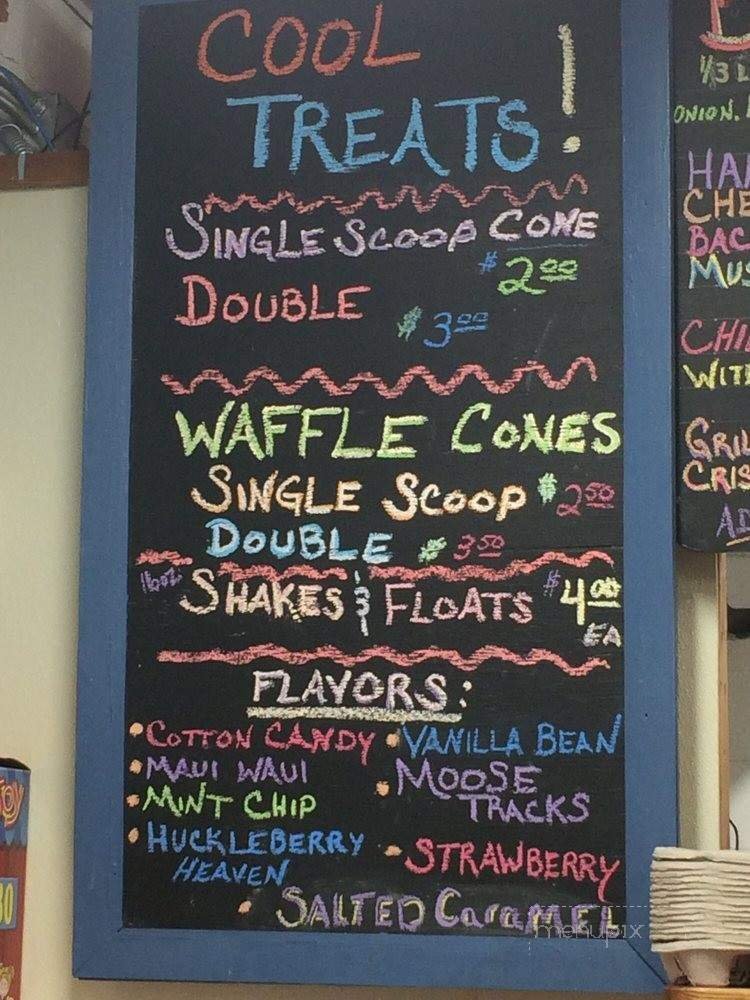 COOL
TREATS!
SINGLE SCOOP CONE
$2.00
DOUBLE
$3.00
WAFFLE CONES
SINGLE SCOOP $2.50
DOUBLE $3.50
16oz SHAKES & FLOATS $4.00
EA
FLAVORS:
• COTTON CANDY
• MAUI WAUI
• MINT CHIP
• HUCKLEBERRY
HEAVEN
• VANILLA BEAN
• MOOSE
TRACKS
- STRAWBERRY
• SALTED CaraMEL
menupix
1/3 L
ONION,
HA
CHE
BAC
MUS
CHI
WIT
GRIL
CRIS
AD